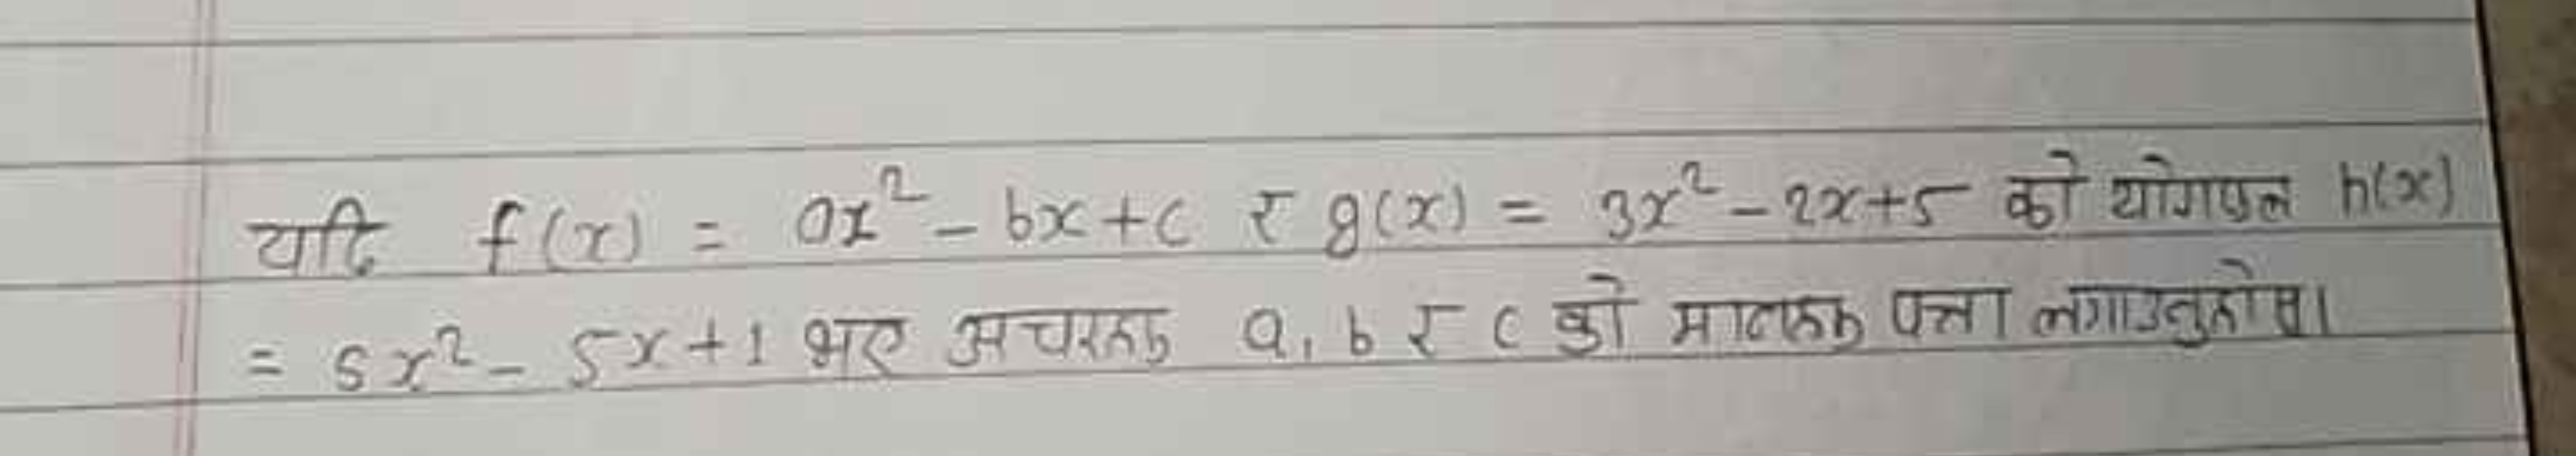 यदि f(x) = ax² - bx + c र g(x) = 3x² - 2x + 5 को योगफल h(x)
= 5x² - 5x + 1 भए अचरहरु a, b र c को मानहरु पत्ता लगाउनुहोस।